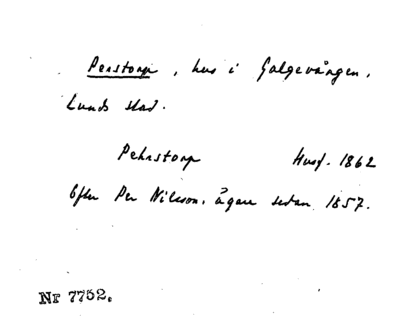 Perstorp, hus i Galgevången,
Lunds stad.
Pehrstorp Husf. 1862
Efter Per Nilsson, ägare sedan 1857.
Nr 7752.